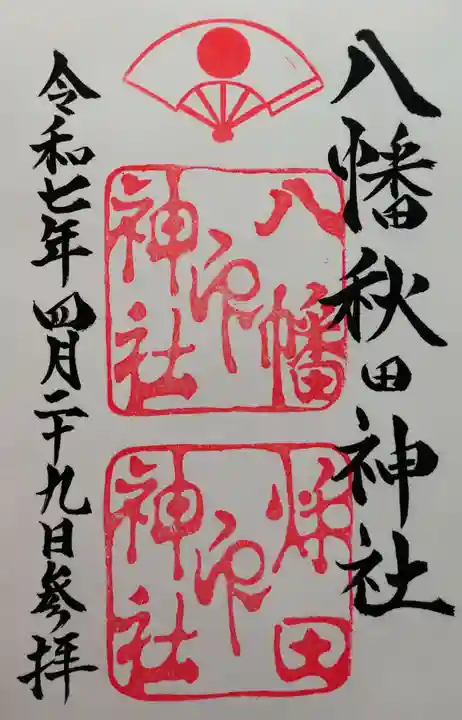 八幡秋田神社
八幡
神社
印
秌田
神社
印
令和七年四月二十九日参拝